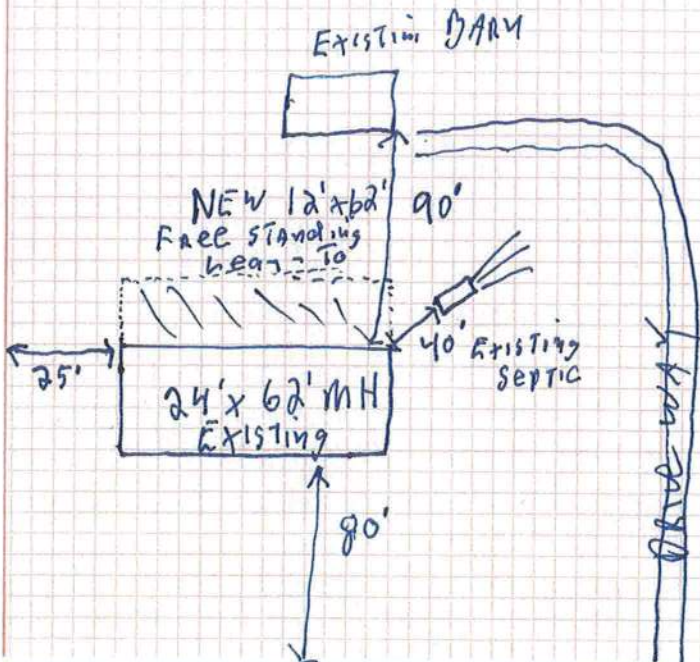 Existin BARN
NEW 12'x62'
FREE STANDING
Lean-To
90'
40' Existing
Septic
25'
24' x 62' MH
Existing
80'
DRIVE WAY